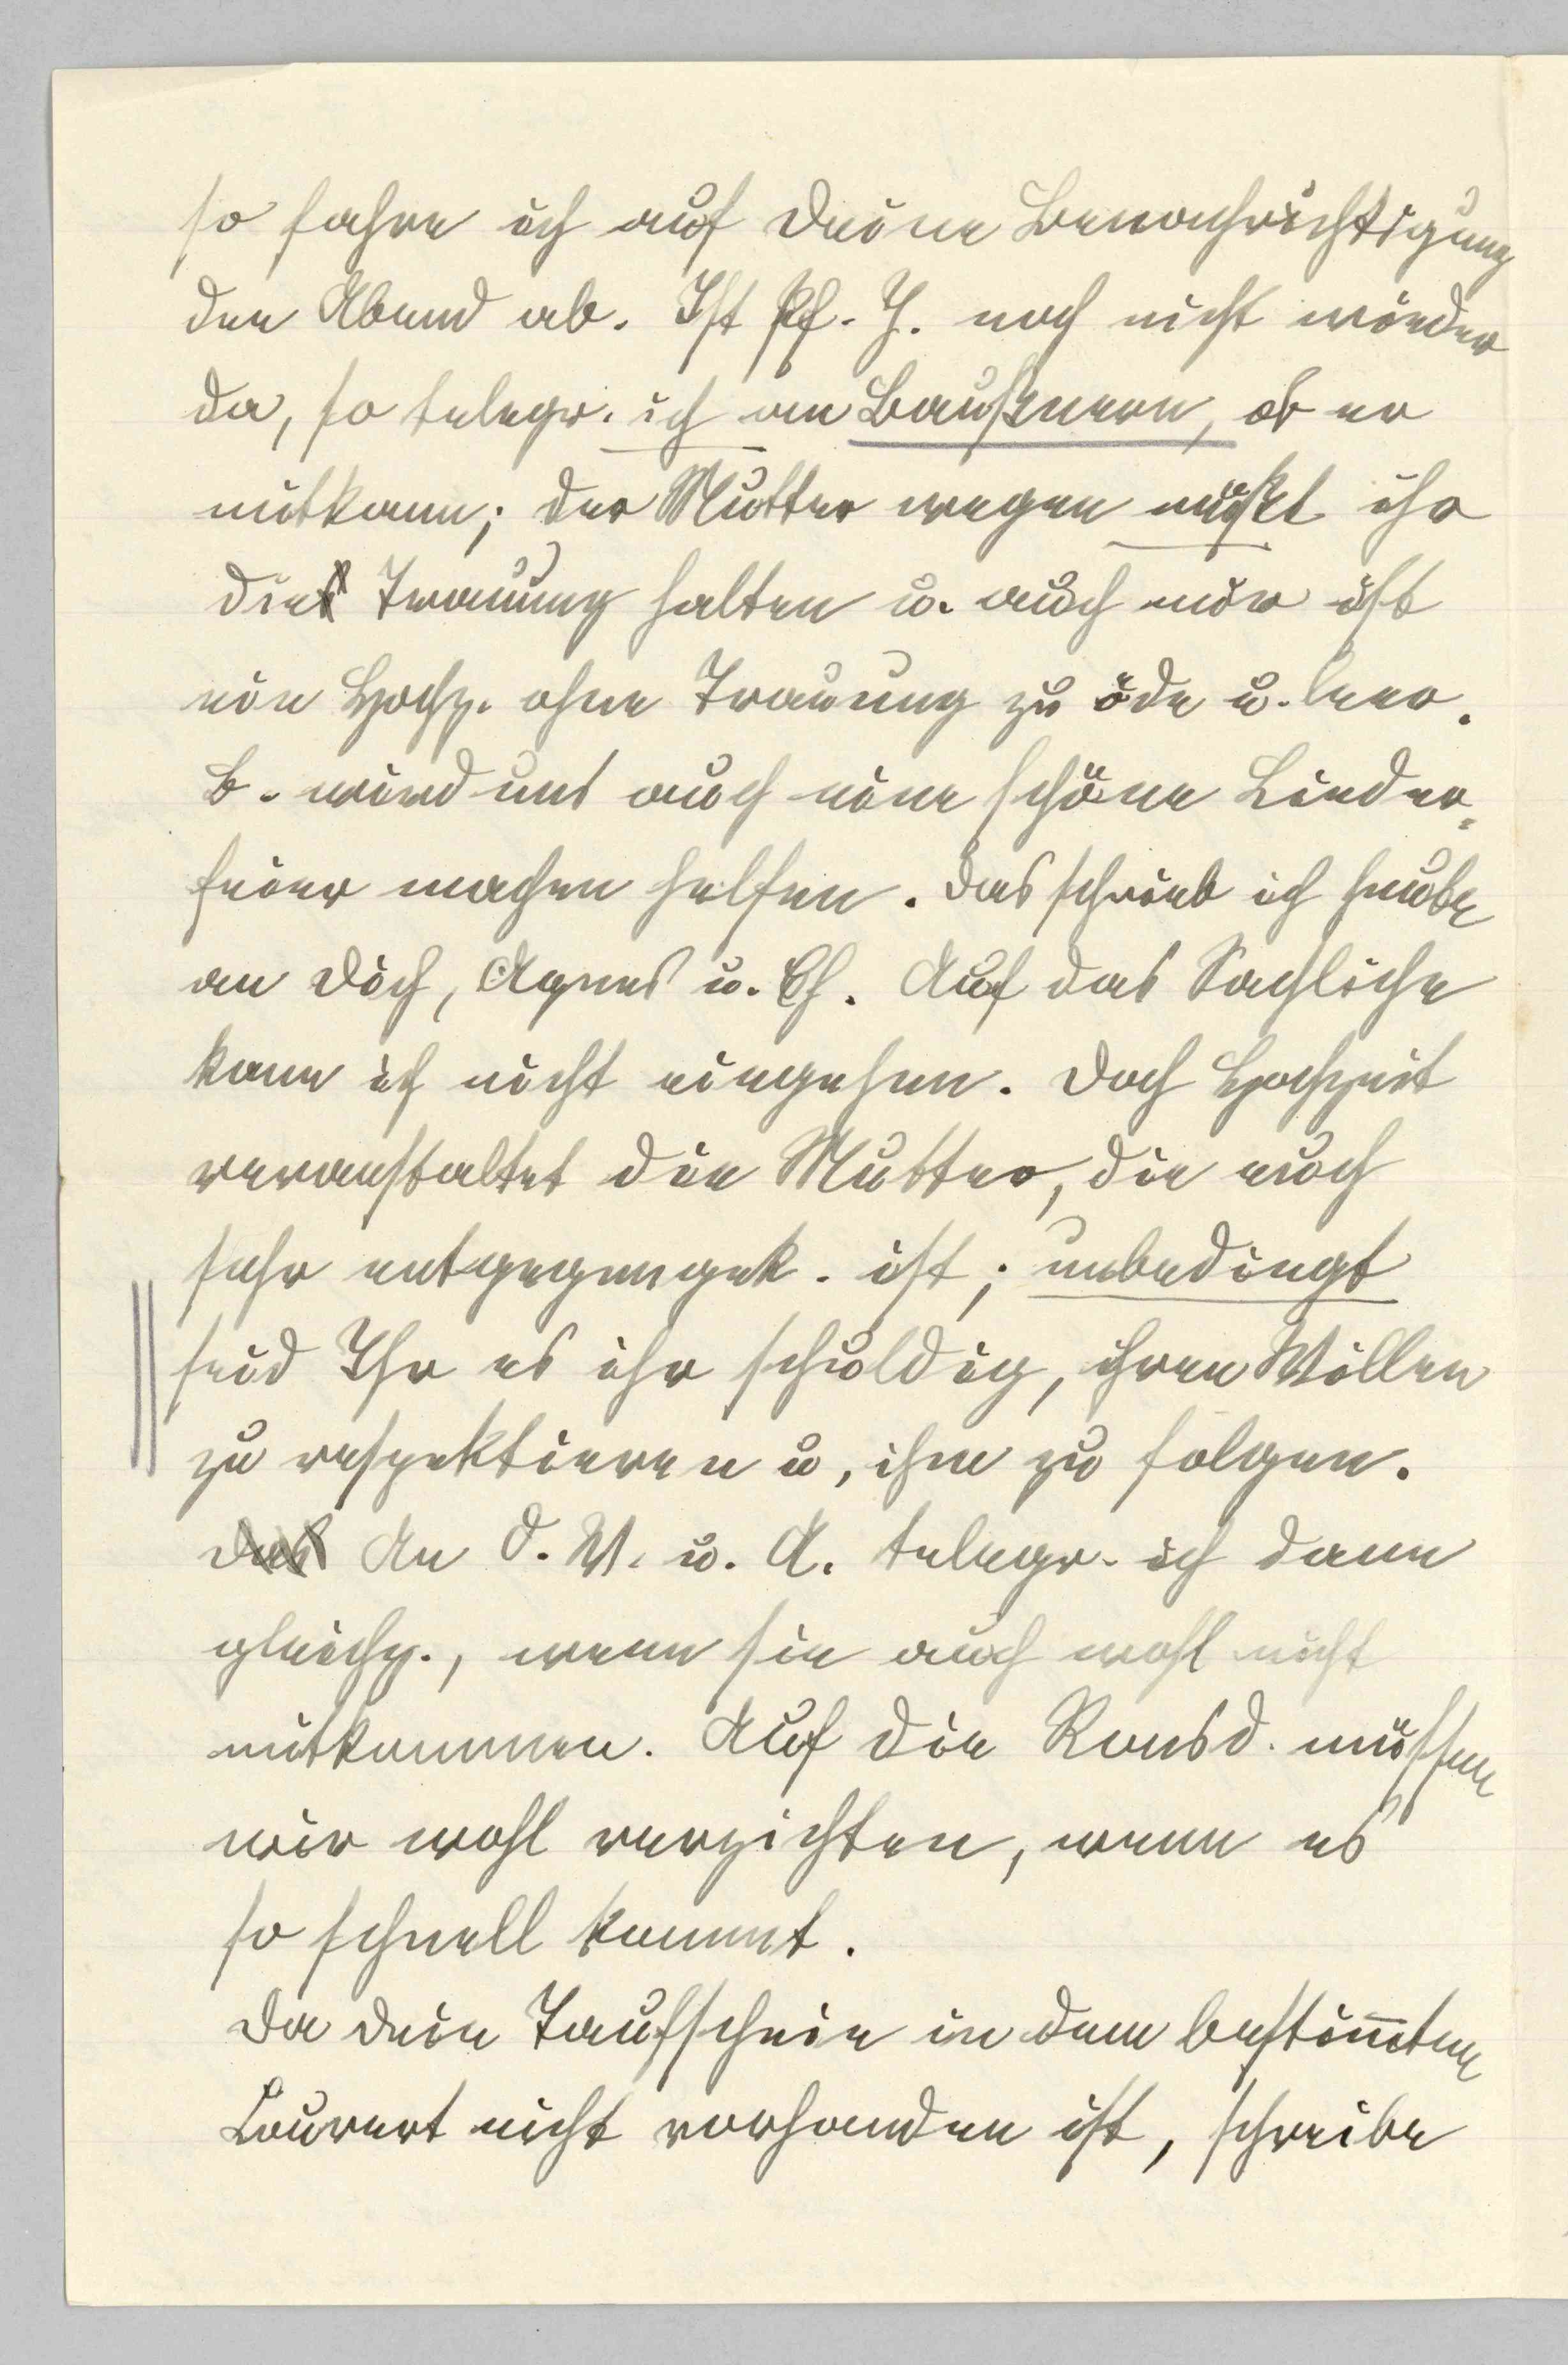 so fahre ich auf Deine Benachrichtigung
den Abend ab. Ist Pf. J. noch nicht wieder
da, so telegr. ich an Baußnern, ob er
mitkann; der Mutter wegen müßt ihr
die Trauung halten u. auch mir ist
ein Hochz. ohne Trauung zu öde u. leer.
B. wird uns auch eine schöne Lieder-
feier machen helfen. Das schrieb ich heute
an Dich, Agnes u. Ch. Auf das Sachliche
kann ich nicht eingehen. Doch Hochzeit
veranstaltet die Mutter, die euch
sehr entgegengek. ist; unbedingt
seid Ihr es ihr schuldig, ihren Willen
zu respektieren u, ihm zu folgen.
Das An O. W. u. A. telegr. ich dann
gleichz., wenn sie auch wohl nicht
mitkommen. Auf die Ronsd. müssen
wir wohl verzichten, wenn es
so schnell kommt.
Da Dein Taufschein in dem bestim̅ten
Couvert nicht vorhanden ist, schreibe